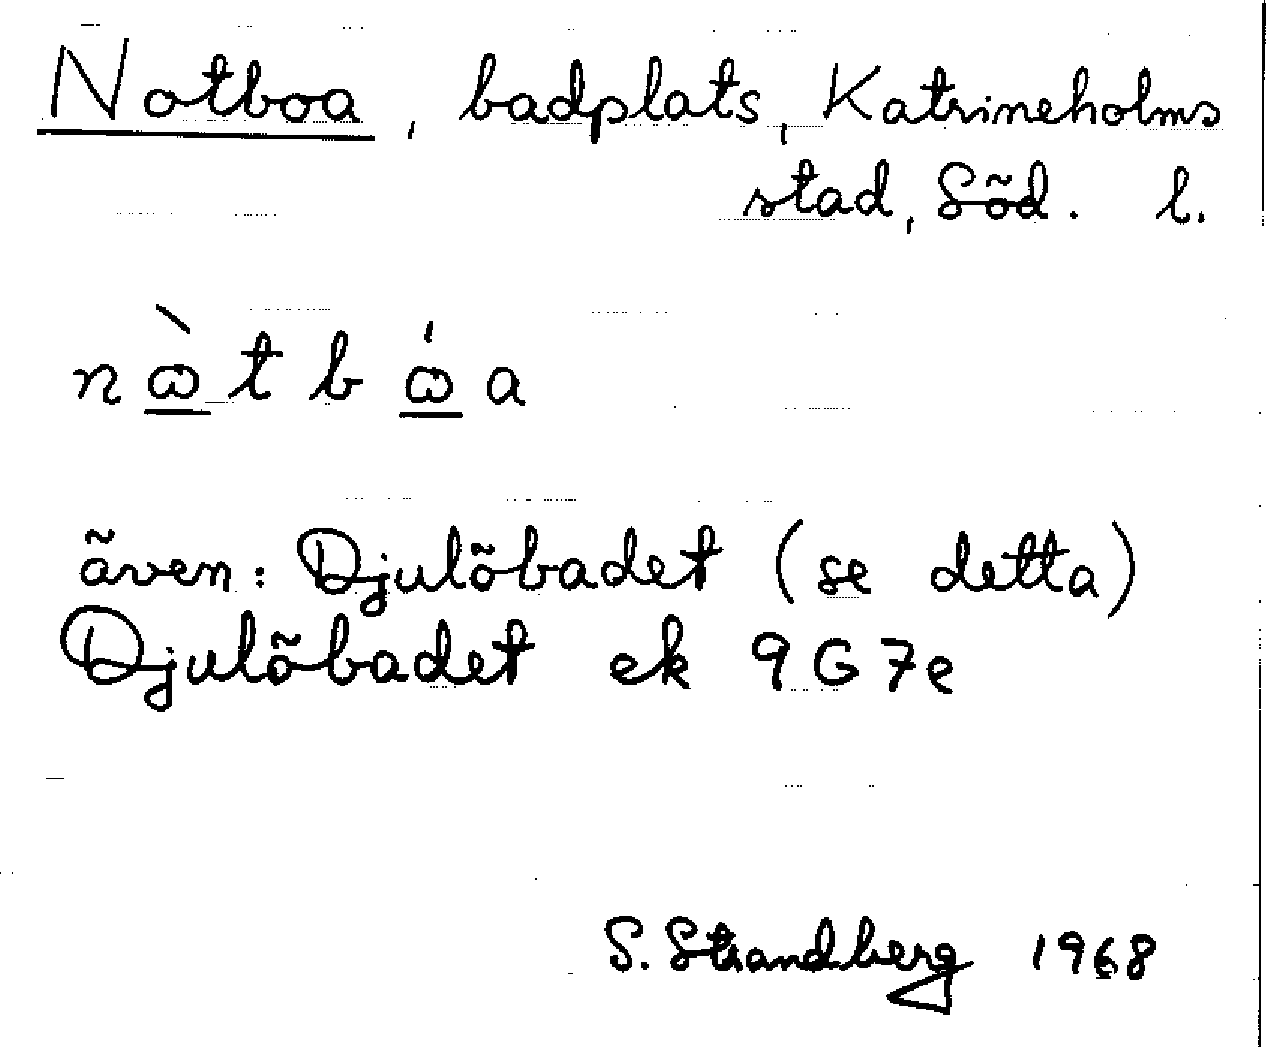 Notboa, badplats, Katrineholms
stad, Söd. l.
nὼ̲tbώ̲a
även: Djulöbadet (se detta)
Djulöbadet ek 9G7e
S. Strandberg 1968